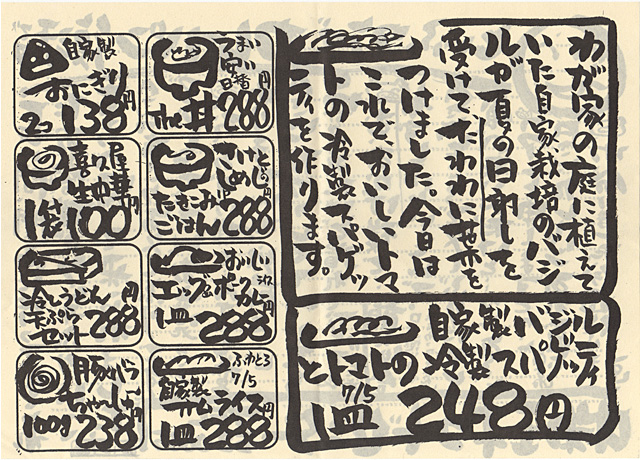 わが家の庭に植えて
いた自家栽培のバジ
ルが夏の日射しを
受けて、たわわに葉を
つけました。今日は
これで、おいしいトマ
トの冷製スパゲッ
ティを作ります。
自家製バジル
とトマトの冷製スパゲッティ
7/5
1皿 248円
うまい
安い
日替
the丼 288円
とろろ
めし
たきこみ
ごはん 288円
おいしい
エッグ&ポーク
カレー
1皿 288円
ふわとろ
7/5
自家製
オムライス
1皿 288円
自家製
おにぎり
2コ 138円
喜多屋
生中華
1袋 100円
冷しうどん
天ぷら
セット 288円
豚ばら
ちゃーしゅー
100g 238円